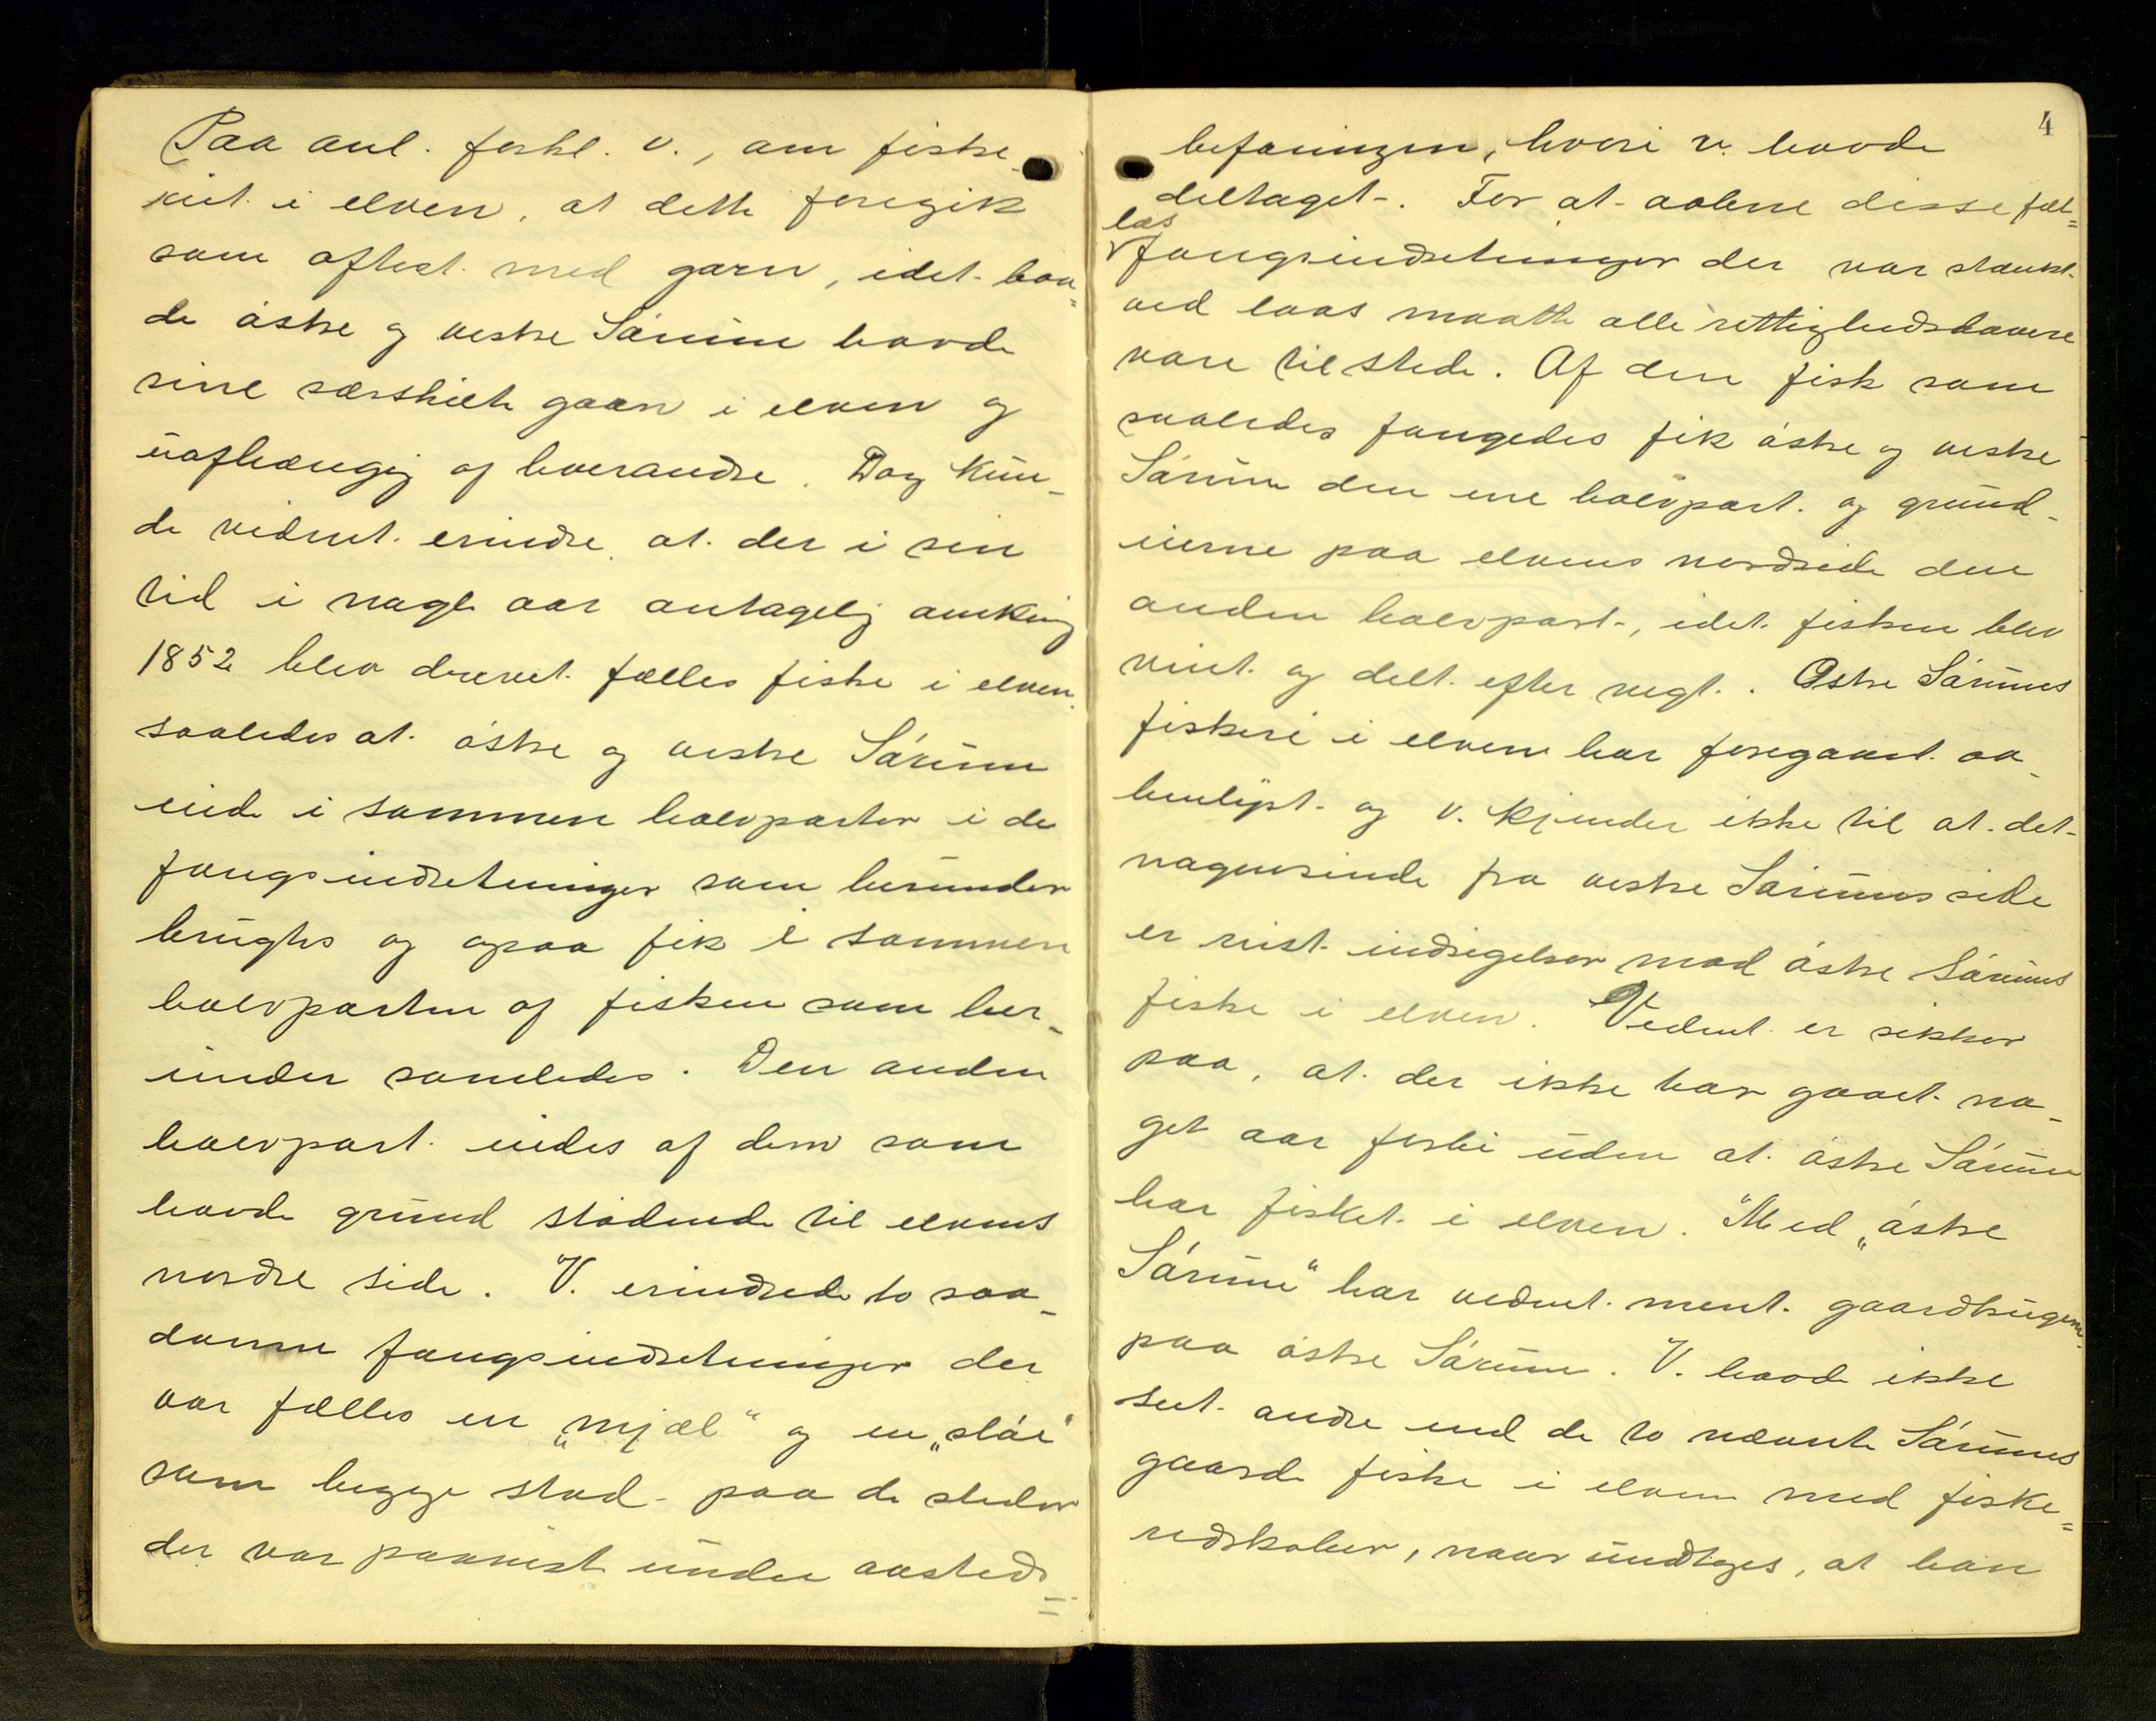 Paa anl. forkl. v., om fiske-
riet i elven, at dette foregik
som oftest med garn, idet baa=
de østre og vestre Sørum havde
sine særskilte garn i elven og
uafhængig af hverandre. Dog kun-
de vidnet erindre at der i sin
tid i nogle aar antagelig omkring
1852 blev drevet fælles fiske i elven
saaledes at østre og vestre Sørum
eiede i sammen halvparten i de
fangsindretninger som herunder
brugtes og ogsaa fik i sammen
halvparten af fisken som her-
under samledes. Den anden
halvpart eiedes af dem som
havde grund stødende til elvens
nordre side. V. erindrede to saa-
danne fangsindretninger der
var fælles en „mjæl“ og en „sløe“
som begge stod paa de steder
der var paavist under aasteds=
4
befaringen, hvori v. havde
deltaget. For at aabne disse fæl=
les
fangsindretninger der var stængt
ved laas maatte alle rettighedshavere
være tilstede. Af den fisk som
saaledes fangedes fik østre og vestre
Sørum den ene halvpart og grund-
eierne paa elvens nordside den
anden halvpart, idet fisken blev
veiet og delt efter vegt. Østre Sørums
fiskeri i elven har foregaaet aa-
benlyst og v. kjender ikke til at det
nogensinde fra vestre Sørums side
er reist indsigelser mod østre Sørums
fiske i elven. Vidnet er sikker
paa, at der ikke har gaaet no-
get aar forbi uden at østre Sørum
har fisket i elven. Med „østre
Sørum“ har vidnet ment gaardbrugerne
paa østre Sørum. V. havde ikke
seet andre end de to nævnte Sørums
gaarde fiske i elven med fiske=
redskaber, naar undtages, at han